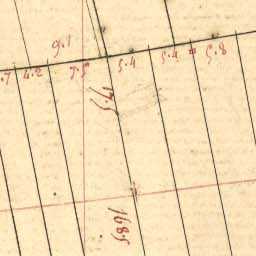 9.1
.7 4.2 5.4 5.4 5.8
17.5
168.5